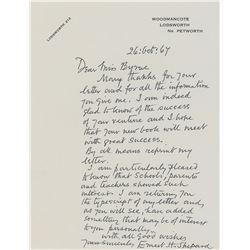 LODSWORTH 212
WOODMANCOTE
LODSWORTH
NR. PETWORTH
26: Oct: 67
Dear Miss Byrne
Many thanks for your
letter and for all the information
you give me. I am indeed
glad to know of the success
of your venture and I hope
that your new book will meet
with great success.
By all means reprint my
letter.
I am particularly pleased
to know that Schools, parents
and teachers showed such
interest. I am returning
the typescript of my letter and,
as you will see, have added
something that may be of interest
to you personally.
with all good wishes
yours sincerely, Ernest H. Shepard